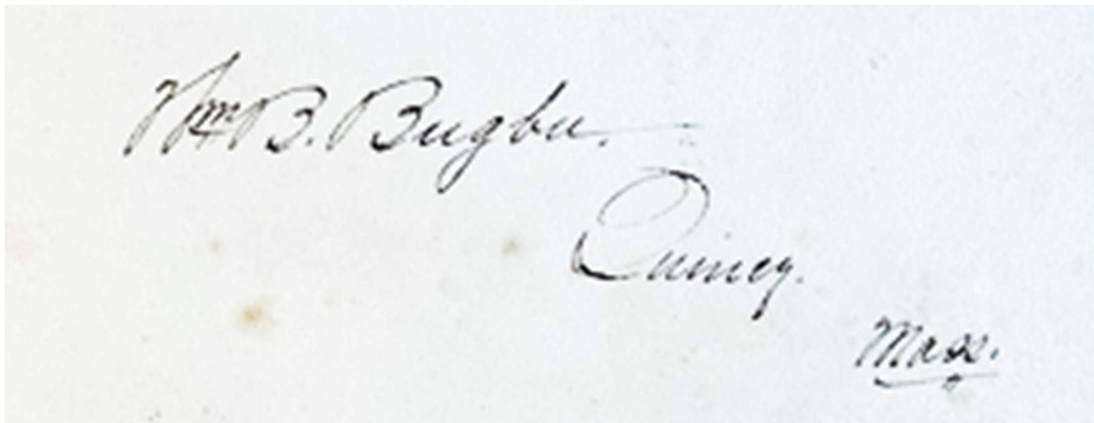 Wm B. Bugbee.
Quincy.
Mass.